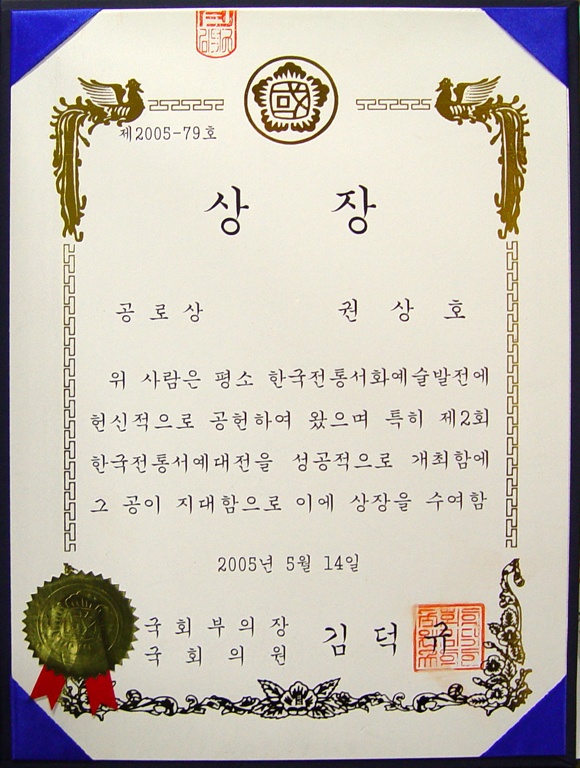 國
제2005-79호
상 장
공로상 권상호
위 사람은 평소 한국전통서화예술발전에
헌신적으로 공헌하여 왔으며 특히 제2회
한국전통서예대전을 성공적으로 개최함에
그 공이 지대함으로 이에 상장을 수여함
2005년 5월 14일
국회부의장
국회의원 김덕규